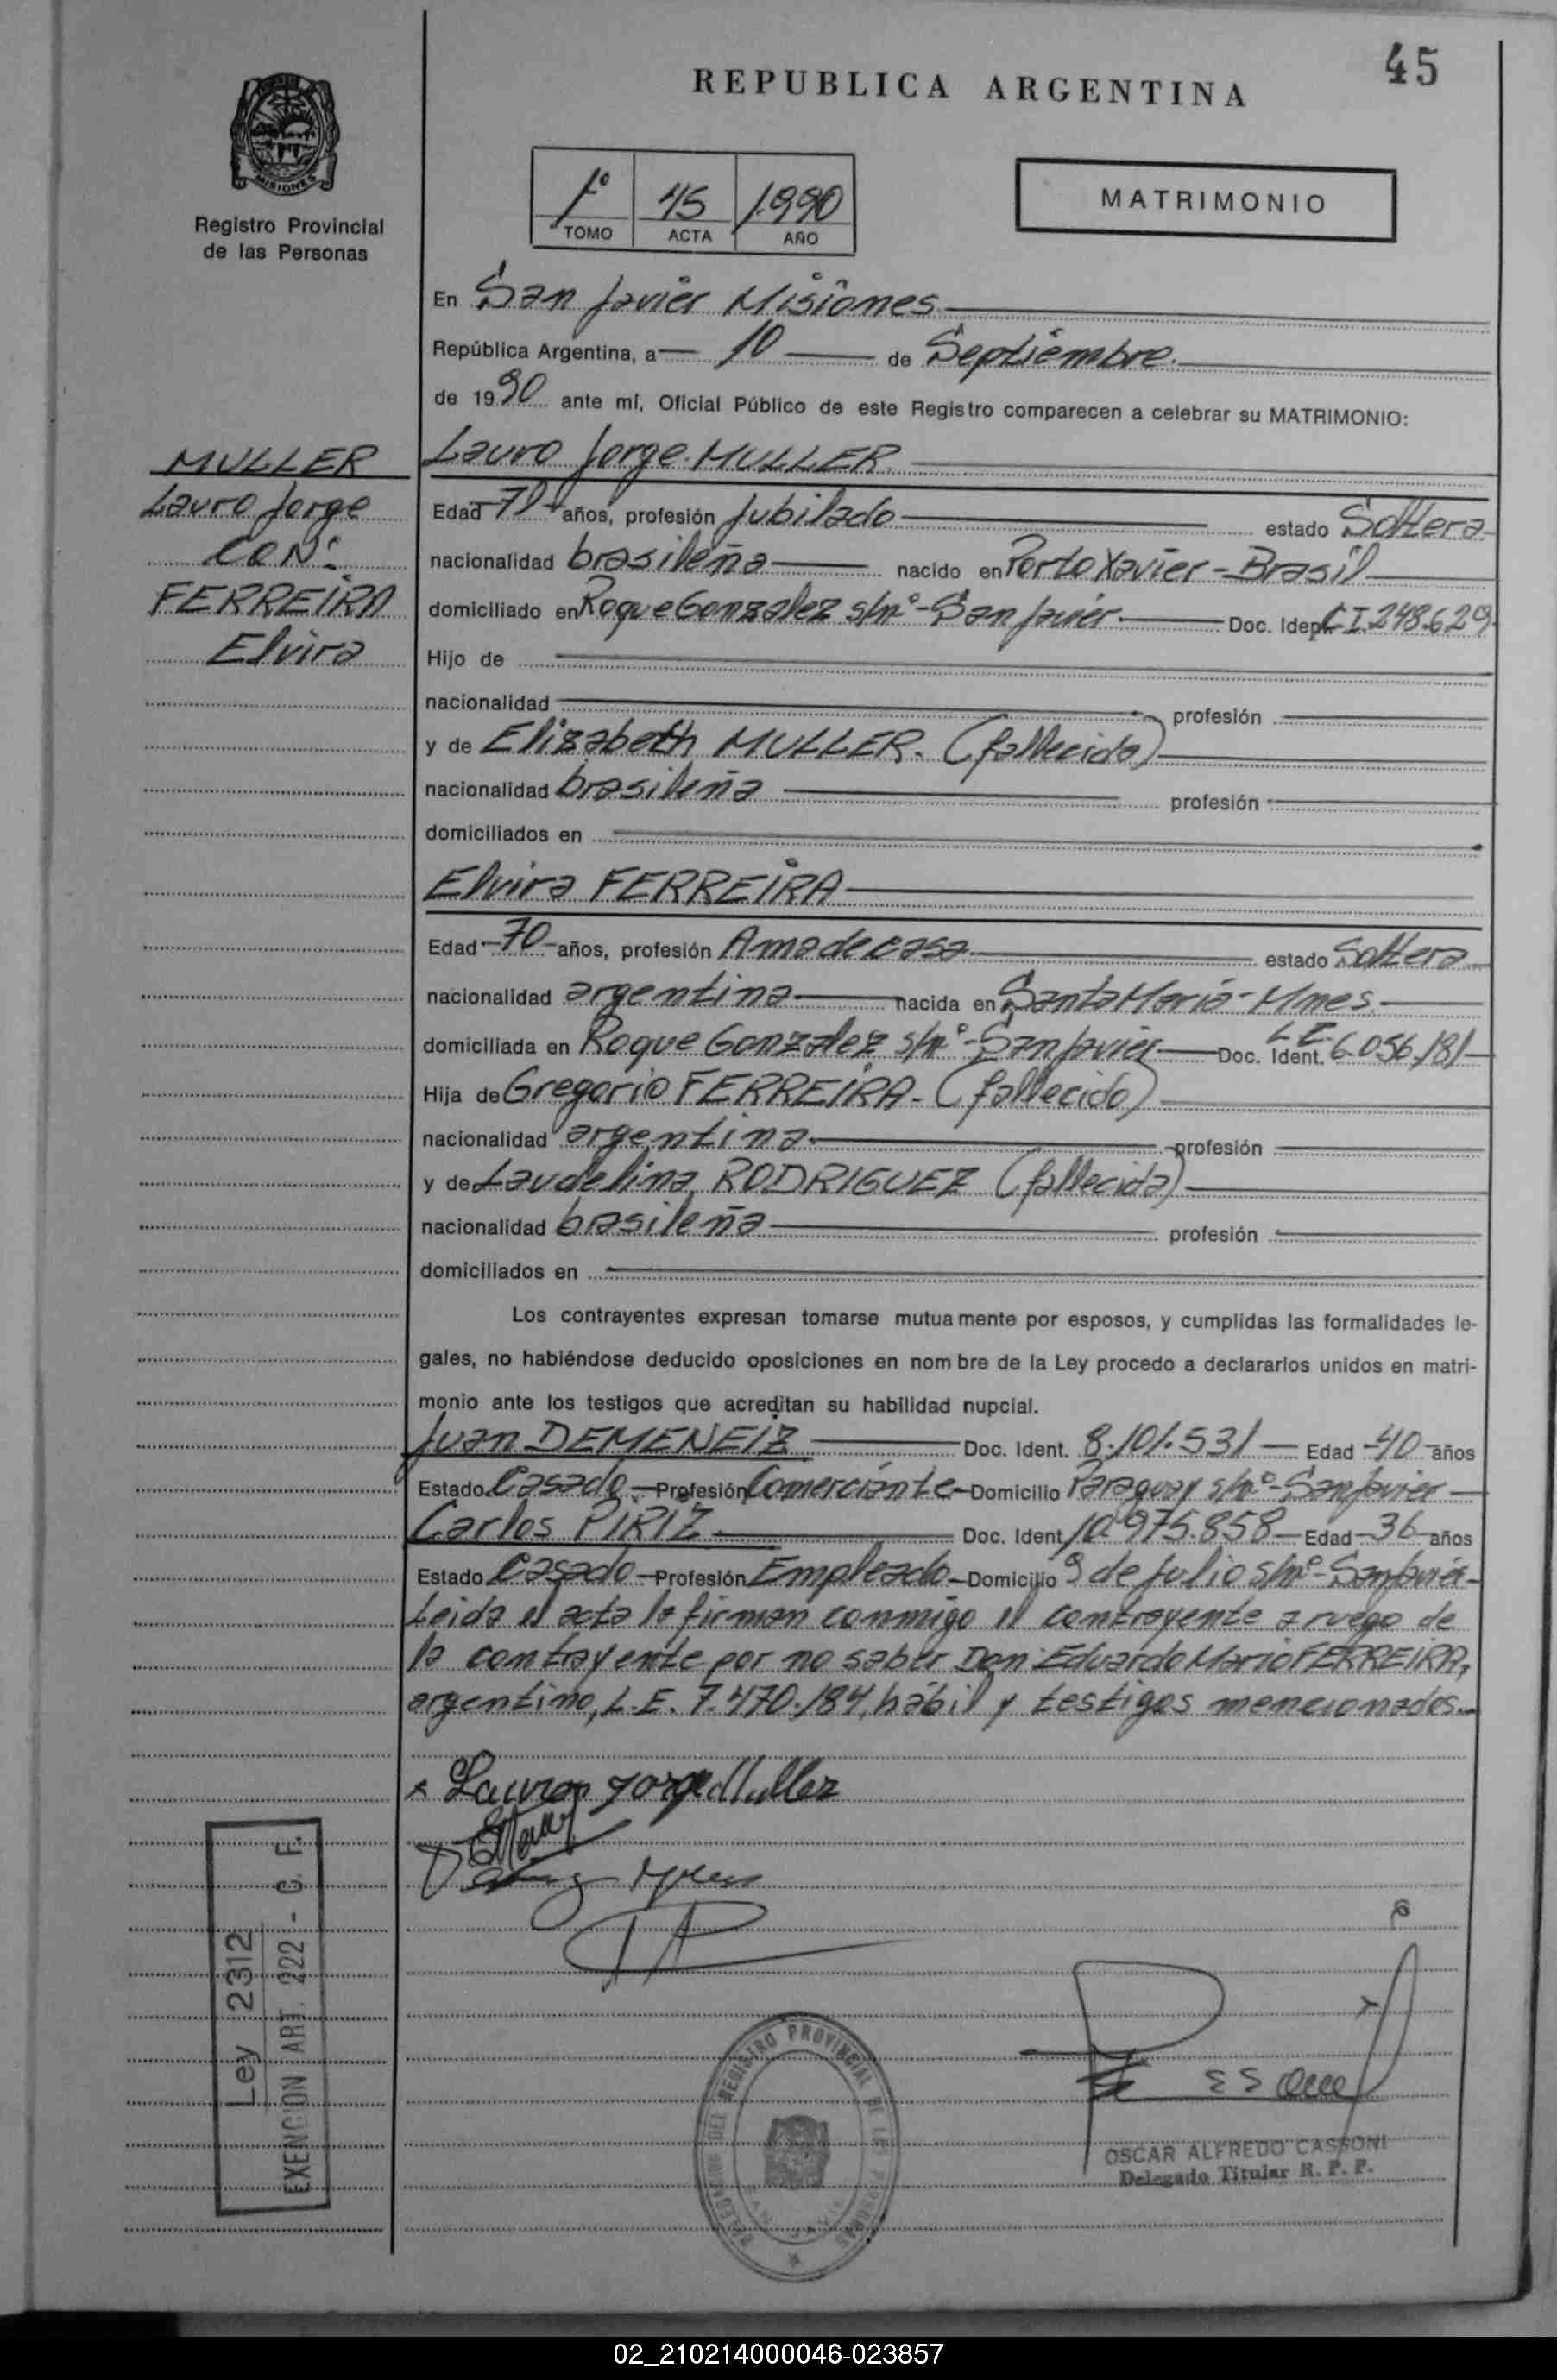 45
REPUBLICA ARGENTINA
MISIONES
Registro Provincial
de las Personas
1º 45 1990
TOMO ACTA AÑO
MATRIMONIO
En San Javier Misiones
República Argentina, a 10 de Septiembre
de 1990 ante mí, Oficial Público de este Registro comparecen a celebrar su MATRIMONIO:
MULLER
Lauro Jorge
CON:
FERREIRA
Elvira
Lauro Jorge MULLER
Edad 71 años, profesión Jubilado estado Soltero
nacionalidad brasileña nacido en Porto Xavier - Brasil
domiciliado en Roque Gonzalez s/nº - San Javier Doc. Ident. C I 248.629
Hijo de
nacionalidad profesión
y de Elizabeth MULLER. (fallecida)
nacionalidad brasileña profesión
domiciliados en
Elvira FERREIRA
Edad 70 años, profesión Ama de casa estado Soltera
nacionalidad argentina nacida en Santa María - Mnes.
domiciliada en Roque Gonzalez s/nº - San Javier Doc. Ident. L E 6.056.181
Hija de Gregorio FERREIRA - (fallecido)
nacionalidad argentina profesión
y de Laudelina RODRIGUEZ (fallecida)
nacionalidad brasileña profesión
domiciliados en
Los contrayentes expresan tomarse mutuamente por esposos, y cumplidas las formalidades le-
gales, no habiéndose deducido oposiciones en nombre de la Ley procedo a declararlos unidos en matri-
monio ante los testigos que acreditan su habilidad nupcial.
Juan DEMENEIZ Doc. Ident. 8.101.531 Edad 40 años
Estado Casado Profesión Comerciante Domicilio Paraguay s/nº - San Javier
Carlos PIRIZ Doc. Ident. 10.975.858 Edad 36 años
Estado Casado Profesión Empleado Domicilio 9 de Julio s/nº - San Javier
Leida el acta la firman conmigo el contrayente a ruego de
la contrayente por no saber Don Eduardo Mario FERREIRA,
argentino, L.E. 7.470.184, hábil y testigos mencionados.
Lauro Jorge Muller
Ley 2312
EXENCION ART. 222 - C. F.
REGISTRO PROVINCIAL DE LAS PERSONAS
OSCAR ALFREDO CASSONI
Delegado Titular R. P. P.
02_210214000046-023857